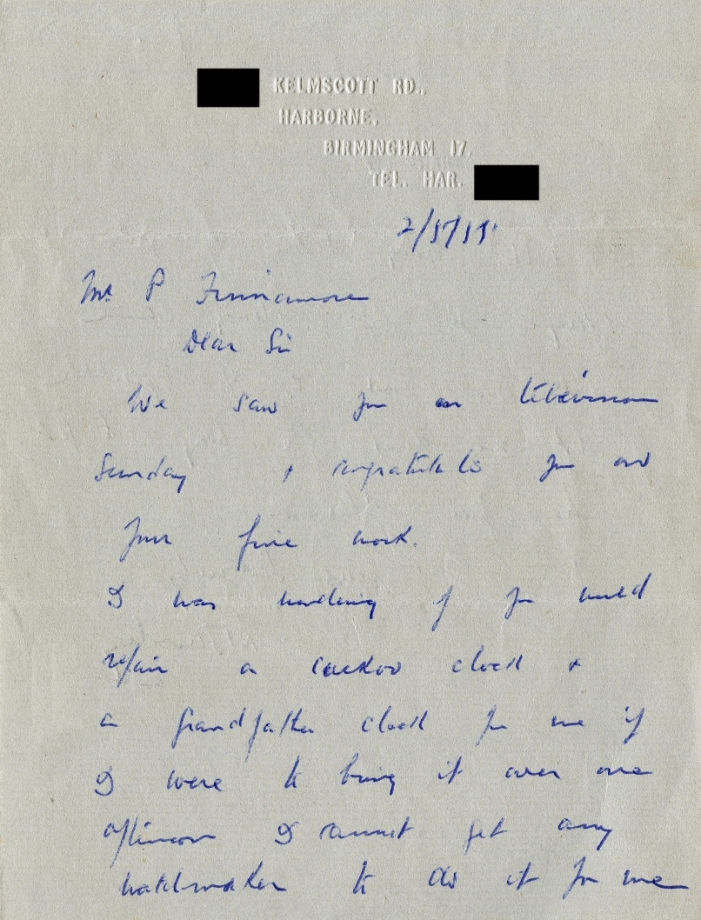 KELMSCOTT RD.,
HARBORNE,
BIRMINGHAM 17.
TEL. HAR.
Mr P Finnamore
Dear Sir
We saw you on television
Sunday + congratulate you on
your fine work.
I was wondering if you would
repair a cuckoo clock +
a grandfather clock for me if
I were to bring it over one
afternoon I cannot get any
watchmaker to do it for me